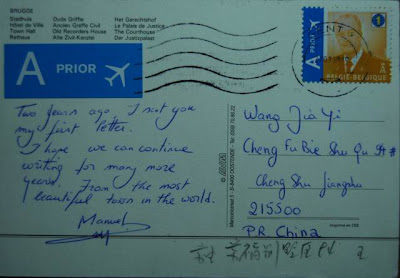 BRUGGE
Stadhuis Oude Griffie Het Gerechtshof
Hôtel de Ville Ancien Greffe Civil Le Palais de Justice
Town Hall Old Recorders House The Courthouse
Rathaus Alte Zivil-Kanzlei Der Justizpalast
A PRIOR
A PRIOR
BELGIË-BELGIQUE
Two years ago I sent you
my first letter.
I hope we can continue
writing for many more
years. From the most
beautiful town in the world.
Manuel
Wang Jia Yi
Cheng Fu Bie Shu Qu
Cheng Shu Jiangshu
215500
P.R. China